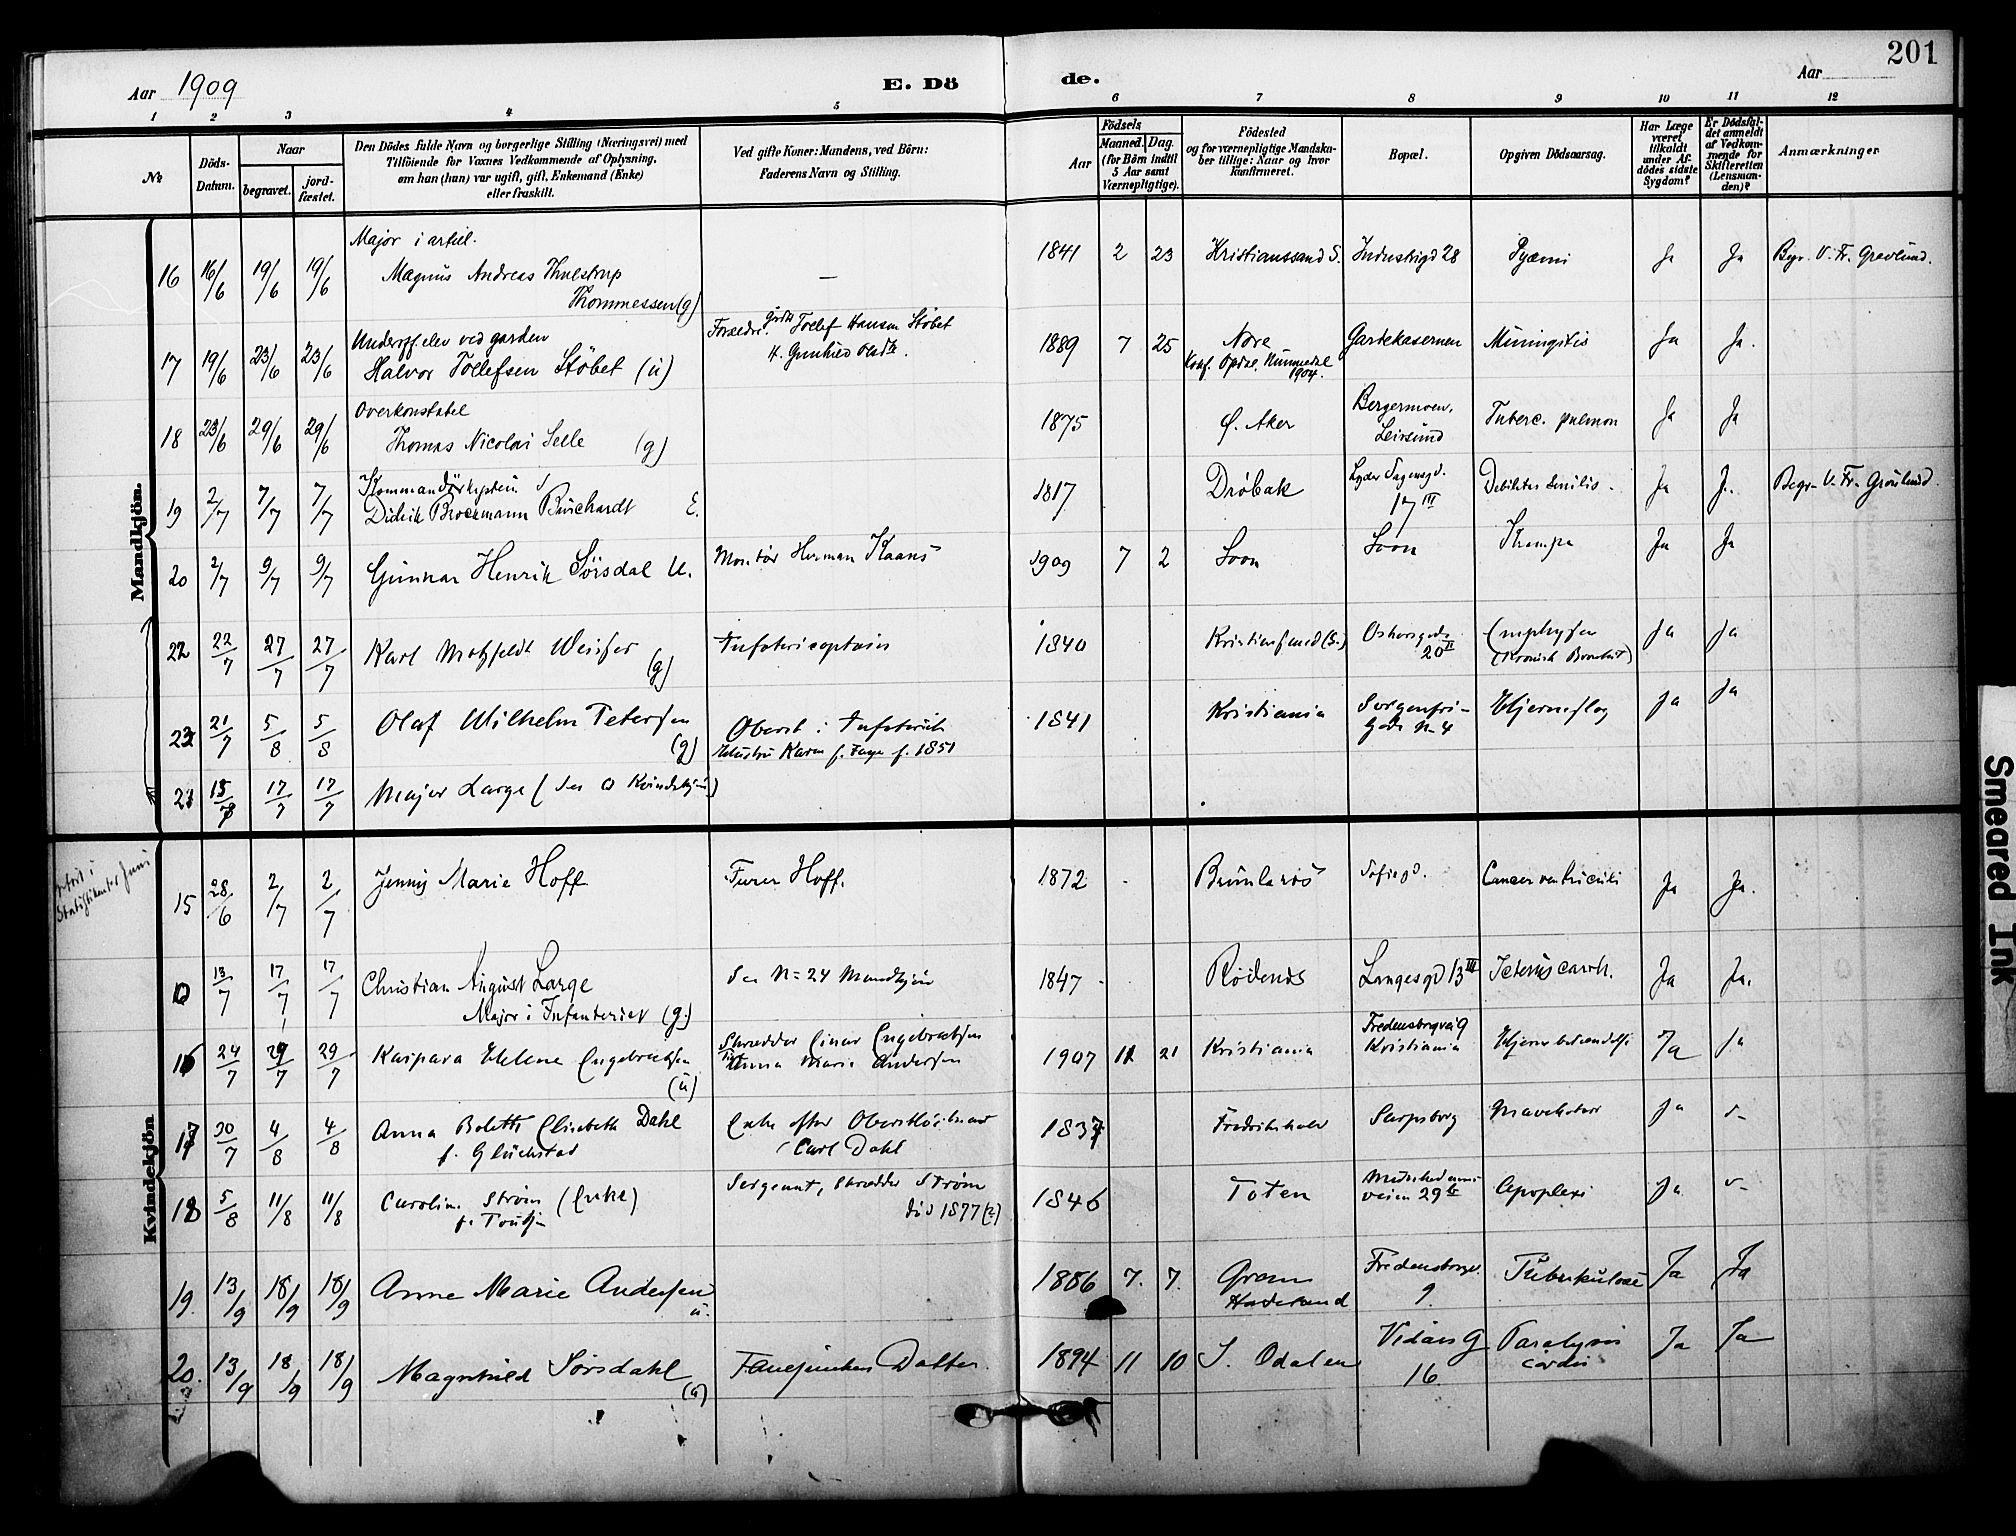 201
Aar 1909
E. Dö
de.
Aar
1 2 3 4 5 6 7 8 9 10 11 12
№
Döds-Datum.
Naar
begravet.
jord-fæstet.
Den Dödes fulde Navn og borgerlige Stilling (Næringsvei) med
Tilföiende for Voxnes Vedkommende af Oplysning,
om han (hun) var ugift, gift, Enkemand (Enke)
eller fraskilt.
Ved gifte Koner: Mandens, ved Börn:
Faderens Navn og Stilling.
Aar
Födsels
Maaned. Dag.
(for Börn indtil
5 Aar samt
Værnepligtige).
Födested
og for værnepligtige Mandskaber tillige: Naar og hvor
konfirmeret.
Bopæl.
Opgiven Dödsaarsag.
Har Læge
været
tilkaldt
under Afdödes sidste
Sygdom?
Er Dödsfaldet anmeldt
af Vedkommende for
Skifteretten
(Lensmanden)?
Anmærkninger
Mandkjön.
Major i artil.
16 16/6 19/6 19/6 Magnus Andreas Thulstrup — 1841 2 23 Kristianssand S. Industrigd 28 Pyæmi Ja Ja Begr. V. Fr. Gravlund.
Thommessen (g)
Underoff elev ved garden
17 19/6 23/6 23/6 Halvor Tollefsen Stöbet (u) Forældre: Tollef Hansen Stöbet 1889 7 25 Nore Gardekasernen Meningitis Ja Ja.
Konf. Opdal, Nummedal 1904.
Overkonstabel
18 23/6 29/6 29/6 Thomas Nicolai Selle (g) 1875 Ø. Aker Bergermoen, Tuberc. pulmon Ja Ja
19 2/7 7/7 7/7 Didrik Brockmann Burchardt E. 1817 Dröbak 17 III Ja Ja Begr. V. Fr. Gravlund.
20 2/7 9/7 9/7 Gunnar Henrik Sörsdal U. Montör Herman Kaans 1909 7 2 Soon Soon Krampe Ja Ja
22 22/7 27/7 27/7 Karl Motzfeldt (g) 1840 20 II Emphysem Ja Ja
23 21/7 5/8 5/8 Olaf Wilhelm Petersen (g) Oberst i Infanteriet 1841 Kristiania Sorgenfrigade N- 4 Hjerneslag Ja Ja
21 15/7 17/7 17/7 Major Lange (se 0 Kvindekjön)
Kvindekjön
15 28/6 2/7 2/7 Jenny Marie Hoff Furer Hoff. 1872 Brunlanæs Sofiegd. Cancer ventriculi Ja Ja.
0 13/7 17/7 17/7 Christian August Lange Se N= 24 Mandkjön 1847 Rödenes Langesgd 13 III Ja Ja.
Major i Infanteriet (g.)
16 24/7 29/7 29/7 Kaspara Helene Engebretsen (u) Skrædder Einar Engebretsen 1907 11 21 Kristiania Fredensborgvei 9 Kristiania Hjernebetændelse Ja Ja
Anna Marie Andersen
17 30/7 4/8 4/8 Anna Bolette Elisabeth Dahl Enke efter Oberstlöitnant 1837 Fredrikshald Sarpsborg Ja
f. Glückstad Carl Dahl
18 5/8 11/8 11/8 Caroline Ström (Enke) Sergeant, Skrædder Ström 1846 Toten Apoplexi Ja
död 1877 (?)
19. 13/9 18/9 18/9 Anne Marie Andersen u. 1886 7. 7. Gran Hadeland Fredensborgv. 9. Tuberkulose Ja Ja
20. 13/9 18/9 18/9 Magnhild Sörsdahl (u) Fanejunkers Datter. 1894 11 10 S. Odalen Vidars G 16 Paralysis cordis Ja Ja
Smeared Ink